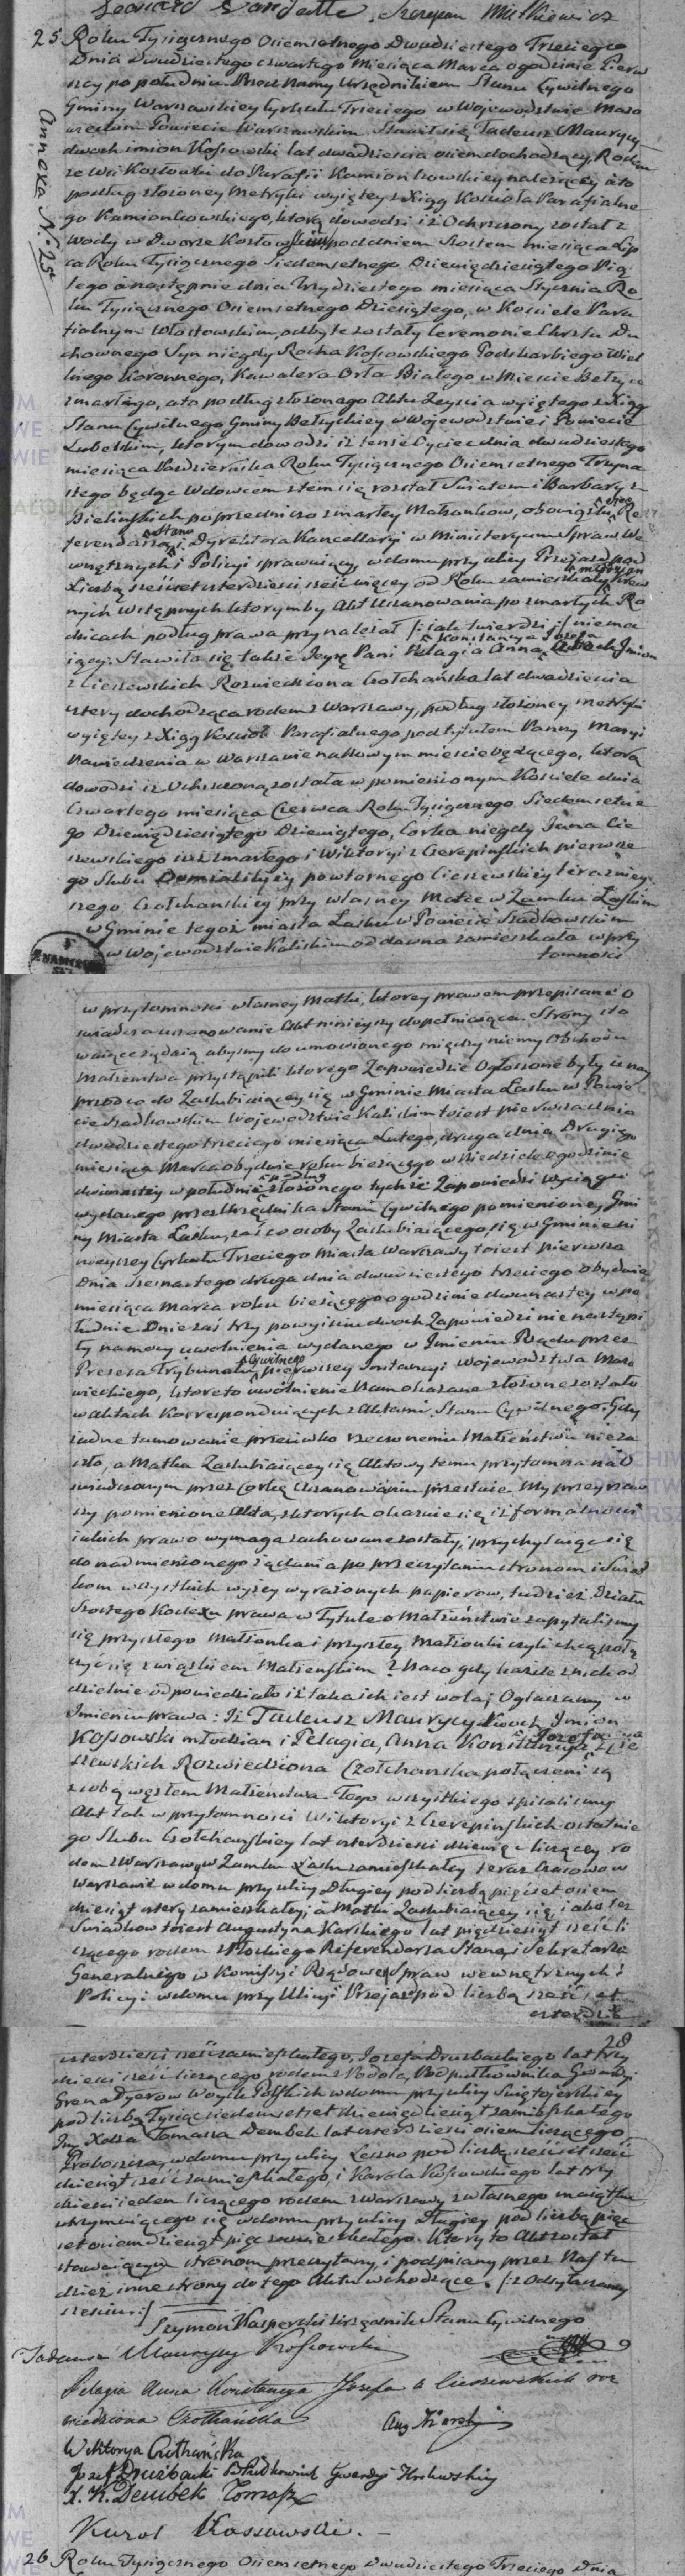 Leonard Szczepan Mutkiewicz
25 Roku Tysiącznego Osiemsetnego Dwudziestego Trzeciego
Dnia Dwudziestego czwartego Miesiąca Marca o godzinie Pierw
szey po południu. Przed Nami Urzędnikiem Stanu Cywilnego
Gminy Warszawskiey Cyrkułu Trzeciego w Woiewodztwie Mazo
wieckim Powiecie Warszawskim Stawił się Tadeusz Maurycy
dwoch imion Kossowski lat dwadzieścia osiem dochodzący, Rodem
ze wsi Kozłowki do Parafii Kamionkowskiey należący a to
podług złożoney Metryki wyiętey z Xiąg Kościoła Parafialne
go Kamionkowskiego, którą dowodzi iż Ochrzczony został z
Wody w Dworze pod dniem Szostem miesiąca Lip
ca Roku Tysiącznego Siedemsetnego Dziewięćdziesiątego Pią
tego a następnie dnia Trzydziestego miesiąca Stycznia Ro
ku Tysiącznego Osiemsetnego Dziesiątego, w Kościele Para
fialnym Włostowskim, odbyte zostały Ceremonie Chrztu Du
chownego Syn niegdy Rocha Kossowskiego Podskarbiego Wiel
kiego Koronnego, Kawalera Orła Białego w Mieście Bełżyce
zmarłego, a to podług złożonego Aktu Zeyścia wyiętego z Xiąg
Stanu Cywilnego Gminy Bełżyckiey w Woiewodztwie i Powiecie
Lubelskim, ktorym dowodzi iż tenże Oyciec dnia dwudziestego
miesiąca Października Roku Tysiącznego Osiemsetnego Trzyna
stego będąc Wdowcem z tem się rozstał Swiatem i Barbary z
Bielińskich poprzedniczo zmarłey Małżonkow, obowiązki Re
ferendarza Stanu i Dyrektora Kancellaryi w Ministeryum Spraw We
wnętrznych i Policyi sprawuiący, w domu przy ulicy Przejazd pod
Liczbą sześćset czterdzieści sześć więcey od Roku zamieszkały
nych Wstępnych ktorymby Akt Uszanowania po zmarłych Ro
dzicach podług prawa przynależał /: iak twierdzi :/ niema
iący. Stawiła się także Jeysę Pani Pelagia Anna Konstancya Józefa czterech Jmion
z Cieszewskich Rozwiedziona Czołchańska lat dwadzieścia
cztery dochodząca rodem z Warszawy, podług złożoney metryki
wyiętey z Xiąg Kościoła Parafialnego pod tytułem Panny Maryi
Nawiedzenia w Warszawie na Nowym mieście będącego, ktorą
dowodzi iż Ochrzczoną została w pomienionym Kościele dnia
Czwartego miesiąca Czerwca Roku Tysiącznego Siedemsetne
go Dziewięćdziesiątego Dziewiątego, Corka niegdy Jana Cie
szewskiego iuż zmarłego i Wiktoryi z Czerepińskich pierwsze
go Slubu powtornego Cieszewskiey teraźniey
szego Czołchańskiey przy własney Matce w Zamku Łaskim
w Gminie tegoż miasta Lasku w Powiecie Szadkowskim
w Woiewodztwie Kaliskim od dawna zamieszkała w przy
tomności
Annexa N. 25
w przytomności własney Matki, ktorey prawem przepisane o
świadcza uszanowanie Akt ninieyszy dopełniaiąca. Strony sta
waiące żądaią abyśmy do umowionego między niemi Obchodu
Małżeństwa przystąpili ktorego Zapowiedzie Ogłoszone były a nay
przod co do Zaślubiaiącey się w Gminie Miasta Łasku w Powie
cie Szadkowskim Woiewodztwie Kaliskim to iest pierwsza dnia
dwudziestego trzeciego miesiąca Lutego, druga dnia Drugiego
miesiąca Marca obydwie roku bieżącego w Niedziele o godzinie
dwunastey w południe podług złożonego tychże Zapowiedzi Wyciągu
wydanego przez Urzędnika Stanu Cywilnego pomienioney Gmi
ny Miasta Łasku, zaś co do osoby Zaślubiaiącego się w Gminie ni
nieyszey Cyrkułu Trzeciego Miasta Warszawy to iest pierwsza
Dnia Szesnastego druga dnia dwudziestego trzeciego obydwie
miesiąca Marca roku bieżącego o godzinie dwunastey w po
łudnie. Dnie zaś trzy po wyiściu dwoch Zapowiedzi nie nastąpi
ły na mocy uwolnienia wydanego w Jmieniu Rządu przez
Prezesa Trybunału Cywilnego pierwszey Instancyi Woiewodztwa Mazo
wieckiego, ktore to uwolnienie nam okazane złożone zostało
w aktach korrespondniących z Aktami Stanu Cywilnego. Gdy
żadne tamowanie przeciwko rzeczonemu Małżeństwu nie za
szło, a Matka Zaślubiaiącey się Aktowi temu przytomna na O
świadczonym przez Corkę Uszanowaniu przestaie. My przeyrzaw
szy pomienione Akta, z ktorych okazuie się iż formalności
iakich prawo wymaga zachowane zostały; przychylaiąc się
do nadmienionego żądania po przeczytaniu stronom i Swiad
kom wszystkich wyżey wyrażonych papierow, tudzież Działu
Szostego Kodexu prawa w Tytule o Małżeństwie zapytaliśmy
się przyszłego Małżonka i przyszłey Małżonki czyli chcą połą
czyć się związkiem Małżeńskim? Na co gdy każde z nich od
dzielnie odpowiedziało iż taka ich iest wola; Ogłaszamy w
Jmieniu prawa: Iż Tadeusz Maurycy dwoch Jmion
Kossowski młodzian i Pelagia, Anna Konstancya Jozefa z Cie
szewskich Rozwiedziona Czołchańska połączeni są
z sobą węzłem Małżeństwa. Tego wszystkiego spisaliśmy
Akt tak w przytomności Wiktoryi z Czerepińskich ostatnie
go Slubu Czołchańskiey lat czterdzieści dziewięć liczącey ro
dem z Warszawy w Zamku Łasku zamieszkałey teraz czasowo w
Warszawie w domu przy ulicy Długiey pod liczbą pięćset osiem
dziesiąt cztery zamieszkałey; a Matki Zaślubiaiącey się, iako też
Swiadkow to iest Augustyna Karskiego lat pięćdziesiąt sześć li
czącego rodem z Płockiego Referendarza Stanu, i Sekretarza
Generalnego w Kommissyi Rządowey Spraw wewnętrznych i
Policyi w domu przy Ulicy Przejazd pod liczbą sześćset
czterdzie
28
czterdzieści sześć zamieszkałego, Jozefa Druzbackiego lat trzy
dzieści sześć liczącego rodem z Podola, Podpułkownika Gwardyi
Grenadyerow Woysk Polskich w domu przy ulicy Swiętojerskiey
pod liczbą Tysiąc siedemset siedmdziesiąt zamieszkałego
Jmę Xiędza Tomasza Dembek lat czterdzieści osiem liczącego
Proboszcza, w domu przy ulicy Leszno pod liczbą sześćset sześć
dziesiąt sześć zamieszkałego, i Karola Kossowskiego lat trzy
dzieści ieden liczącego rodem z Warszawy z własnego maiątku
utrzymuiącego się w domu przy ulicy Długiey pod liczbą pięć
set osiemdziesiąt pięć zamieszkałego. Ktory to Akt został
stawaiącym stronom przeczytany, i podpisany przez Nas tu
dzież inne strony do tego Aktu wchodzące. /: z Odsyłaczamy
sześciu :/
Szymon Kasperski Urzędnik Stanu Cywilnego
Tadeusz Maurycy Kossowski
Pelagia Anna Konstancya Józefa z Cieszewskich roz
wiedziona Czołchańska Aug Karski
Wiktorya Czołchańska
Jozef Druzbacki Podpułkownik Gwardyi Krolewskiey
X. K. Dembek Tomasz
Karol Kossowski.
26 Roku Tysiącznego Osiemsetnego Dwudziestego Trzeciego Dnia